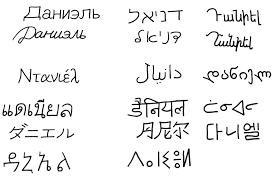 Даниэль דניאל Դանիել
Даниэль דניאל Դանիել
Ντανιέλ دانيال დანიელ
แดเนียล डैनियल
ダニエル 丹尼尔 다니엘
ዳኒኤል